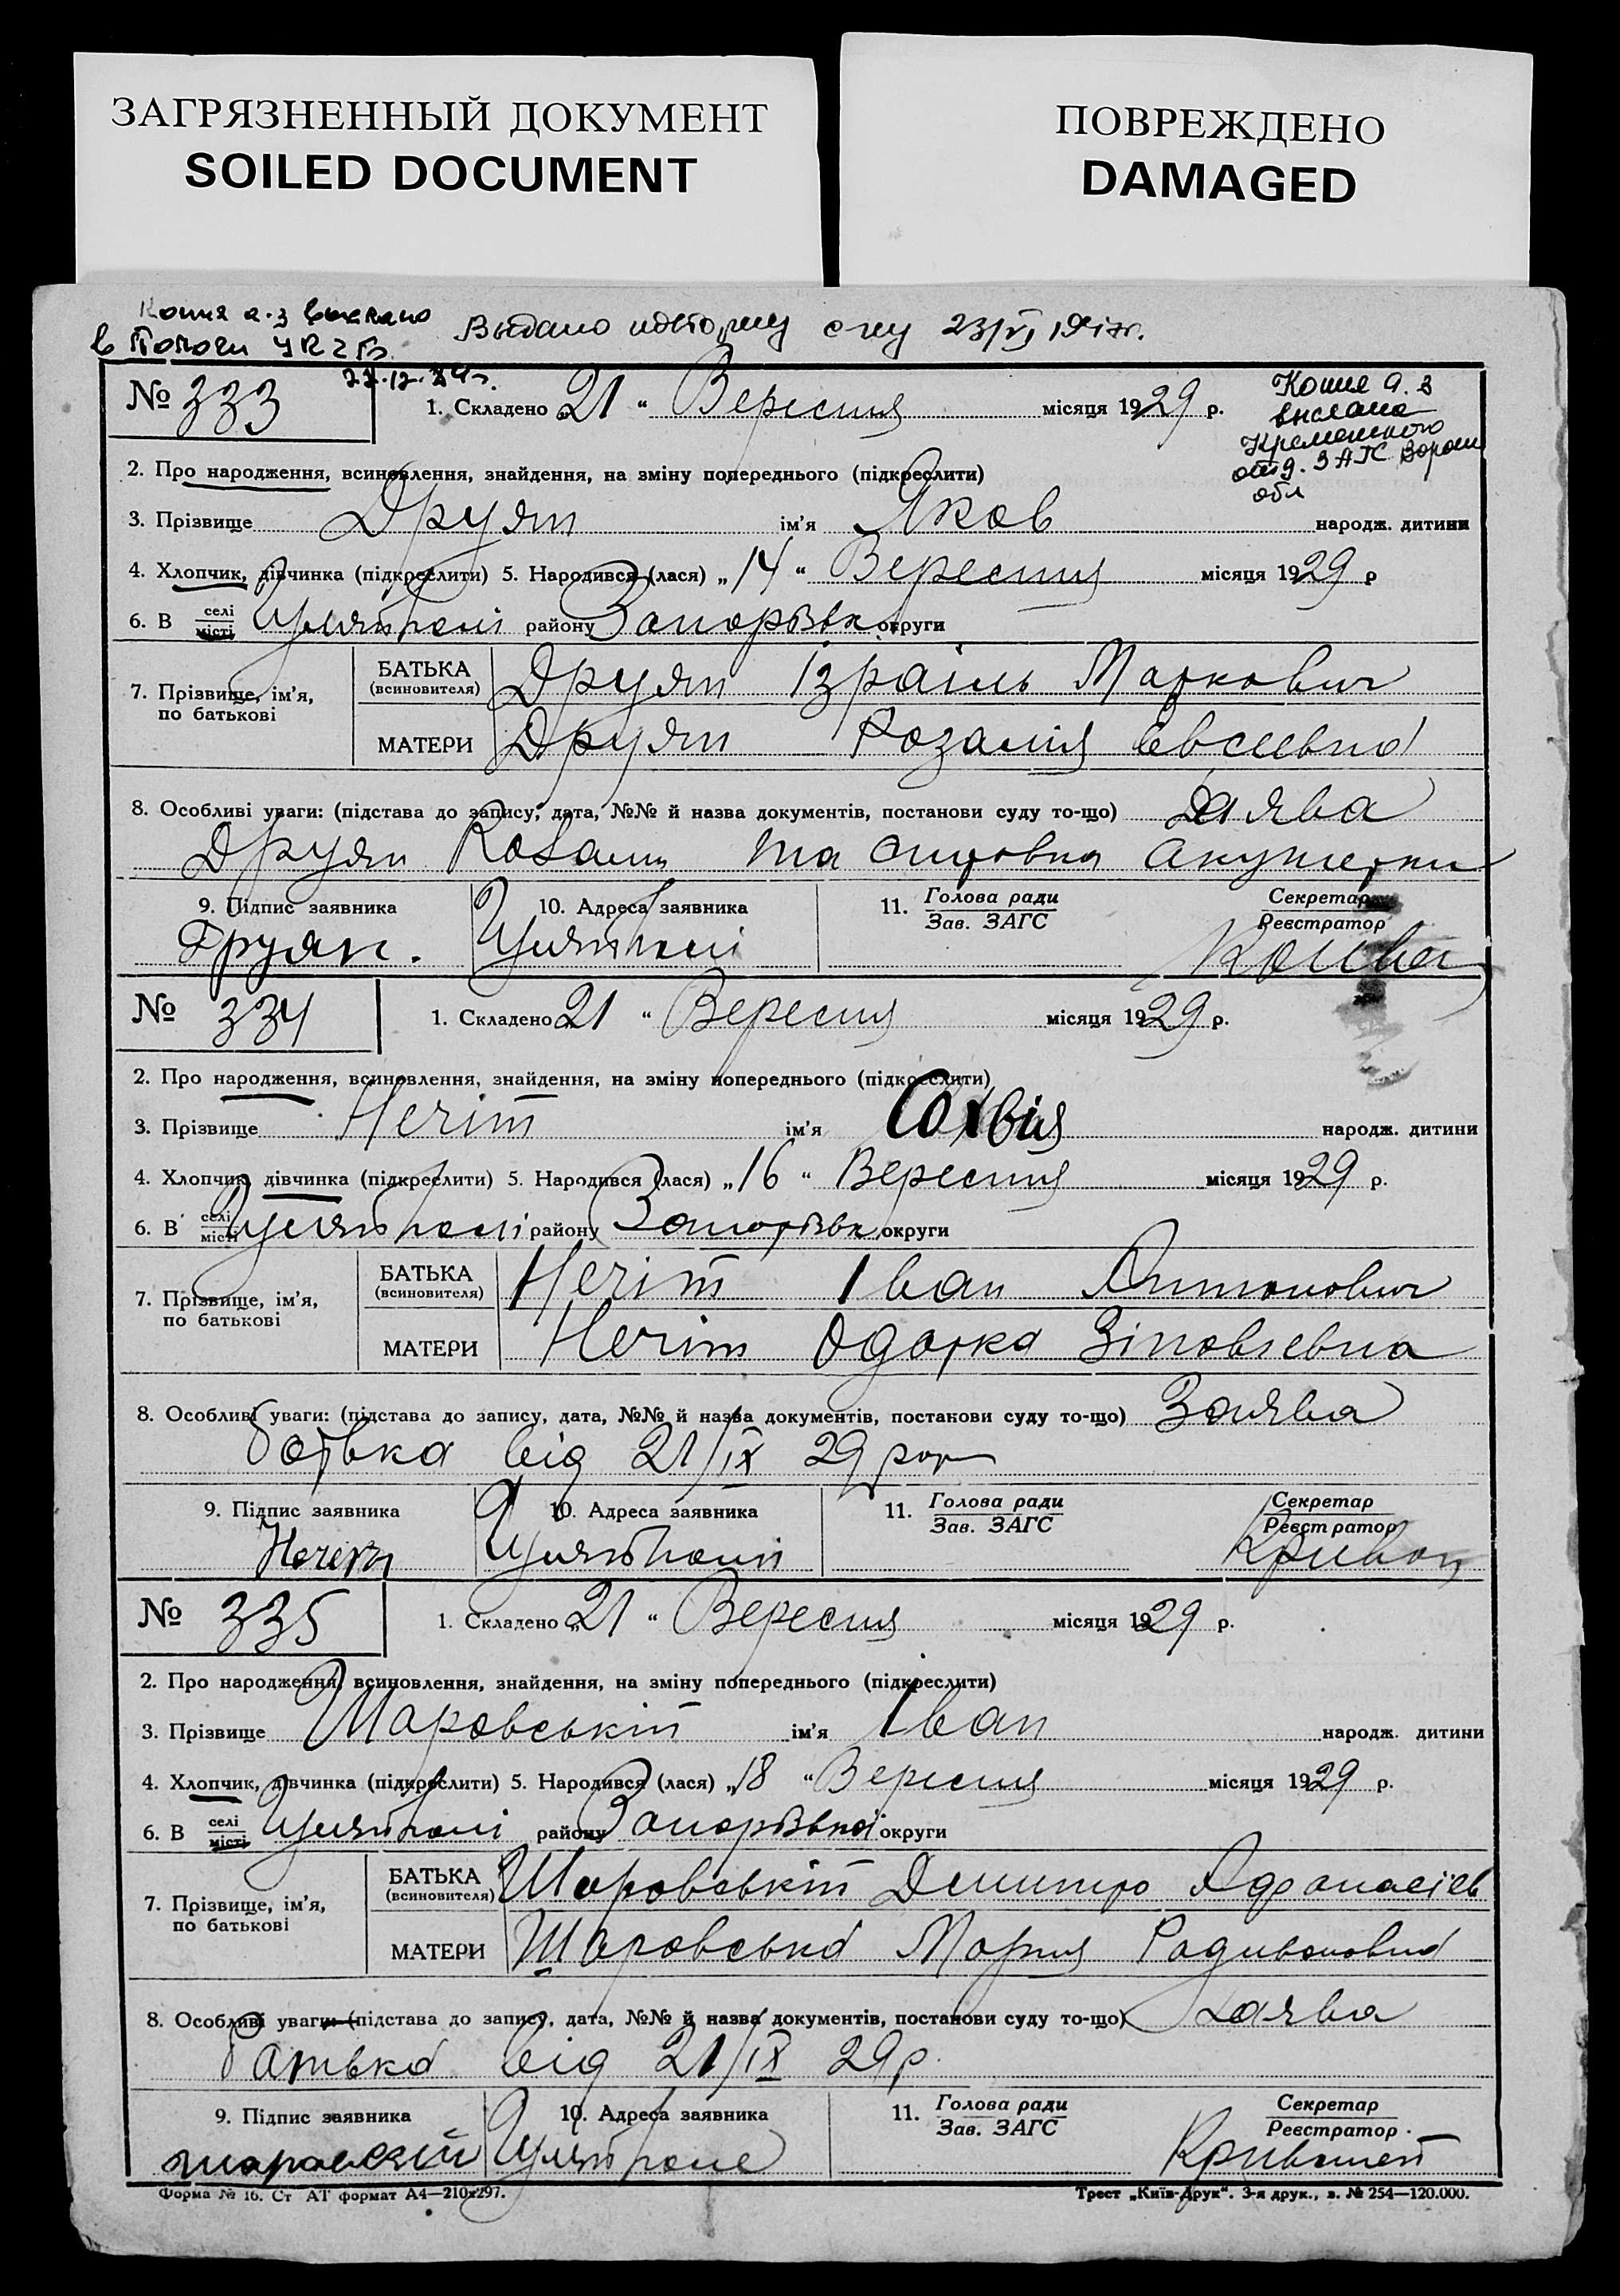 ЗАГРЯЗНЕННЫЙ ДОКУМЕНТ
SOILED DOCUMENT
ПОВРЕЖДЕНО
DAMAGED
Копия а.з выслано
в Пологи
Выдано повторну с-ву 23/VI
22.12.
№ 333
1. Складено „21“ Вересня місяця 1929 р.
Копие а.з
выслана
отд. ЗАГС Ворош
обл
2. Про народження, всиновлення, знайдення, на зміну попереднього (підкреслити)
3. Прізвище Друян ім’я Яков народж. дитини
4. Хлопчик, дівчинка (підкреслити) 5. Народився (лася) „14“ Вересня місяця 1929 р
6. В селі місті Гуляйполі району Запоріжк. округи
7. Прізвище, ім’я, по батькові
БАТЬКА (всиновителя) Друян Ізраіль Маркович
МАТЕРИ Друян Розалія Евсеевна
8. Особливі уваги: (підстава до запису, дата, №№ й назва документів, постанови суду то-що) Заява
Друян та акушерки
9. Підпис заявника 10. Адреса заявника 11. Голова ради Зав. ЗАГС Секретар Реєстратор
Друян. Гуляйполі
№ 334
1. Складено „21“ Вересня місяця 1929 р.
2. Про народження, всиновлення, знайдення, на зміну попереднього (підкреслити)
3. Прізвище Нечіт ім’я народж. дитини
4. Хлопчик, дівчинка (підкреслити) 5. Народився (лася) „16“ Вересня місяця 1929 р.
6. В селі місті Гуляйполі району Запоріжк. округи
7. Прізвище, ім’я, по батькові
БАТЬКА (всиновителя) Нечіт Іван Антонович
МАТЕРИ Нечіт Одарка Зіновʼєвна
8. Особливі уваги: (підстава до запису, дата, №№ й назва документів, постанови суду то-що) Заява
батька від 21/IX 29 року
9. Підпис заявника 10. Адреса заявника 11. Голова ради Зав. ЗАГС Секретар Реєстратор
Гуляйполі
№ 335
1. Складено „21“ Вересня місяця 1929 р.
2. Про народження, всиновлення, знайдення, на зміну попереднього (підкреслити)
3. Прізвище Шаровський ім’я Іван народж. дитини
4. Хлопчик, дівчинка (підкреслити) 5. Народився (лася) „18“ Вересня місяця 1929 р.
6. В селі місті Гуляйполі району Запоріжкої округи
7. Прізвище, ім’я, по батькові
БАТЬКА (всиновителя) Шаровський Дмитро Афанасієв
МАТЕРИ Шаровська Мария Радивоновна
8. Особливі уваги: (підстава до запису, дата, №№ й назва документів, постанови суду то-що) Заява
батька від 21/IX 29 р.
9. Підпис заявника 10. Адреса заявника 11. Голова ради Зав. ЗАГС Секретар Реєстратор
Гуляйполе
Форма № 16. Ст АТ формат А4—210x297.
Трест „Київ-Друк“. 3-я друк., з. № 254—120.000.